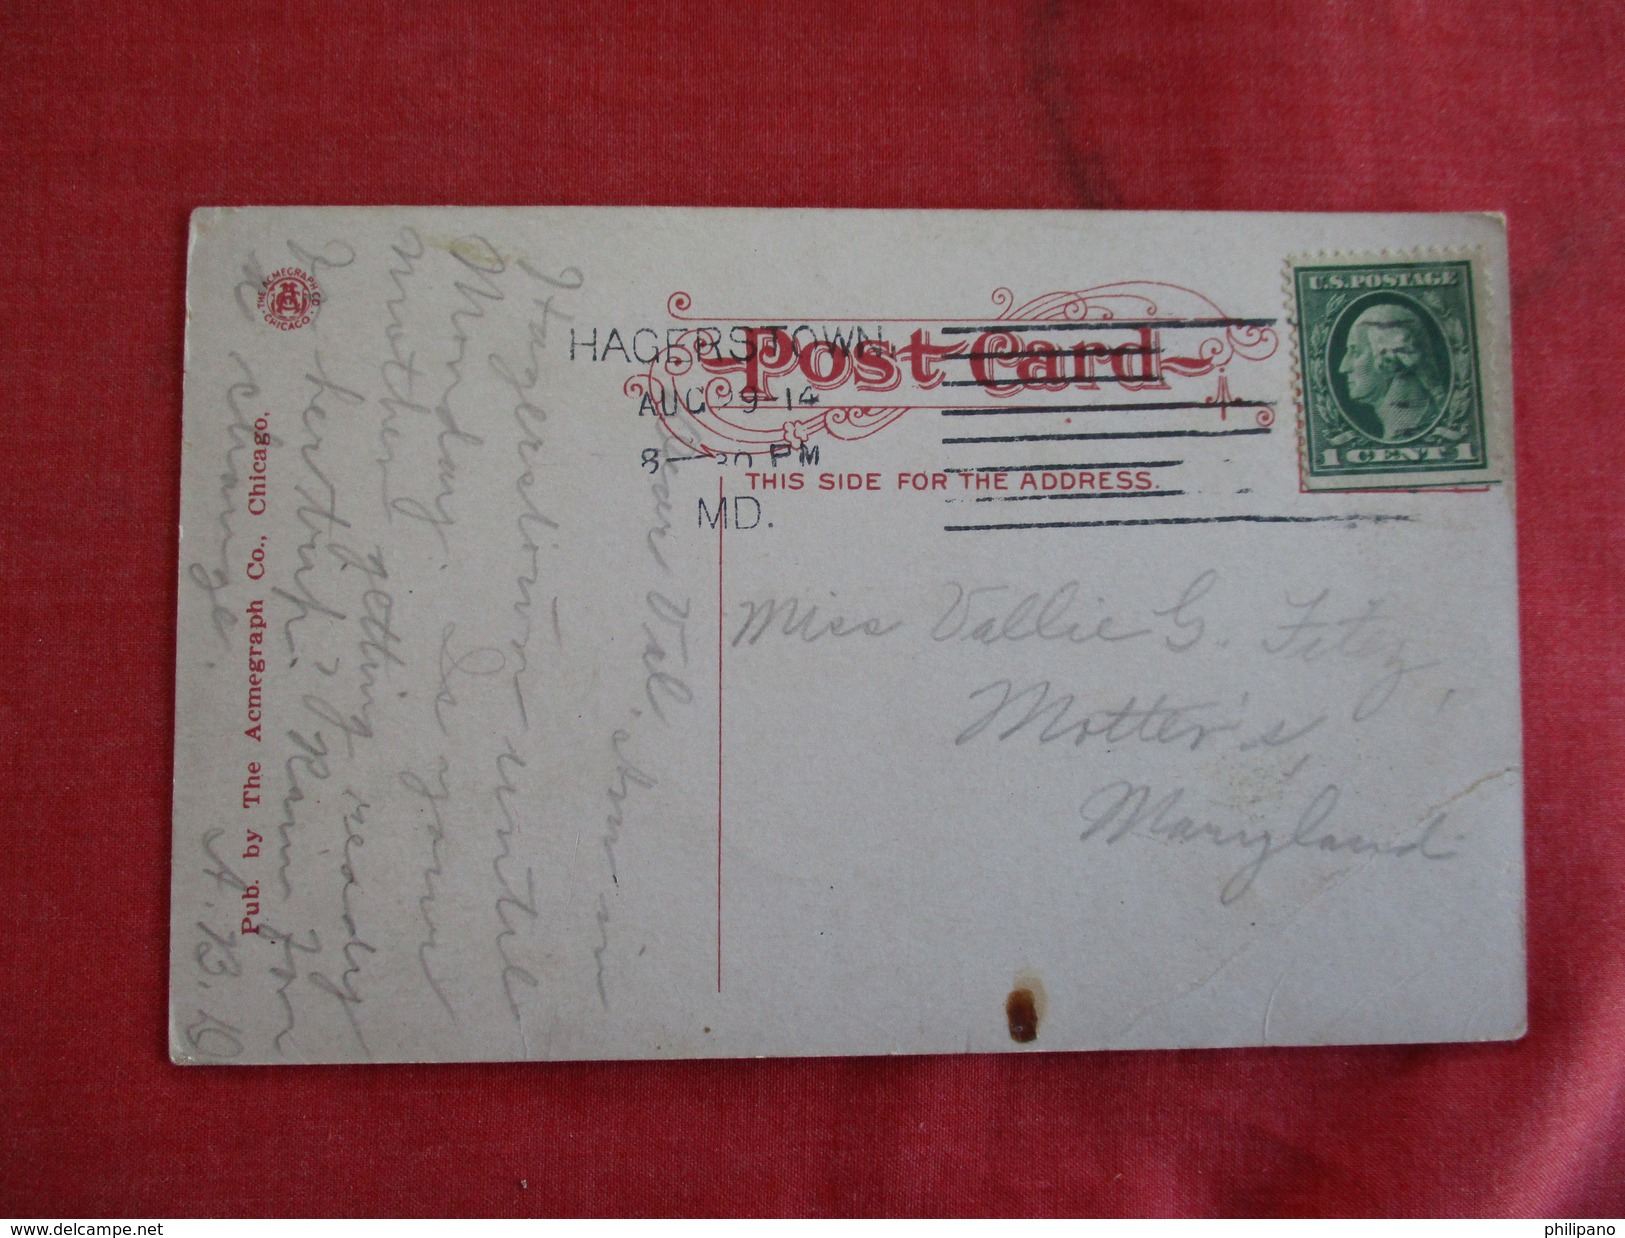 Post Card
THIS SIDE FOR THE ADDRESS.
U.S.POSTAGE
1 CENT 1
HAGERSTOWN
AUG 29-14
8—30 PM
MD.
Miss Vallie G. Fitz,
Motter's,
Maryland
Dear Val, am in
Hagerstown until
Monday. Is your
mother getting ready
for her trip? I
change.
A. B. K
THE ACMEGRAPH CO.
CHICAGO
Pub. by The Acmegraph Co., Chicago.
philipano
www.delcampe.net